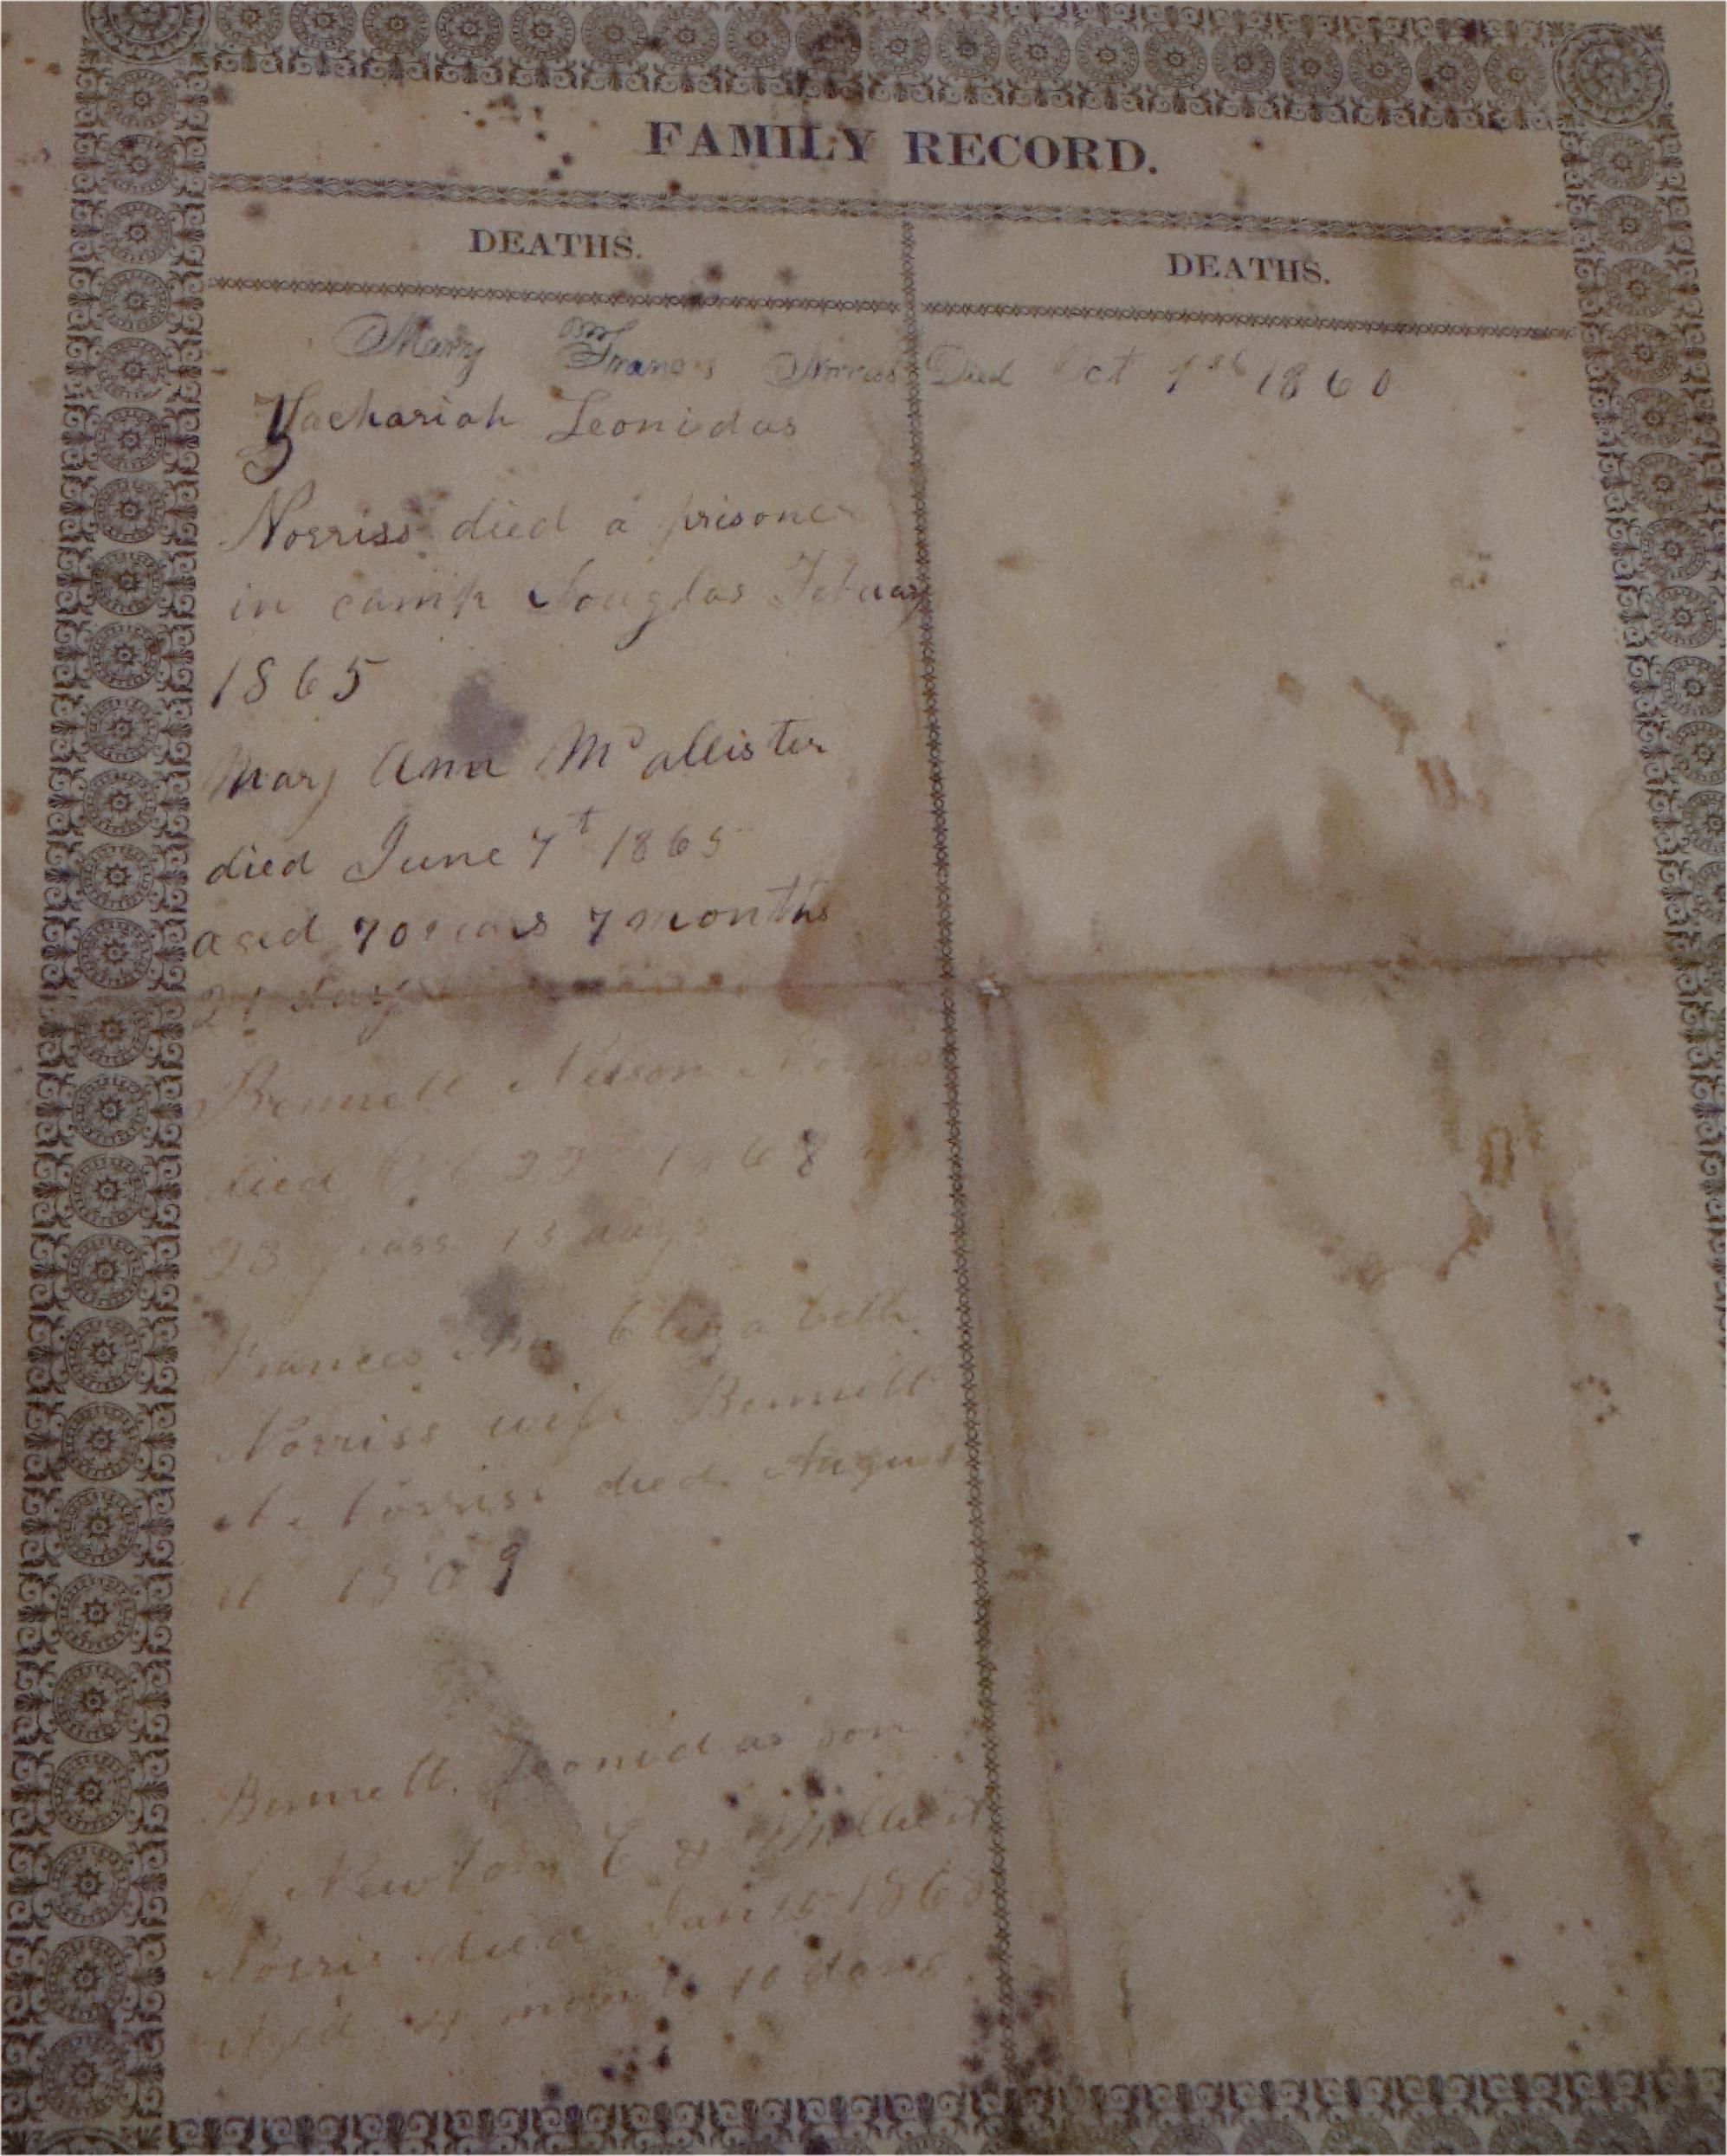 FAMILY RECORD.
DEATHS.
DEATHS.
Mary Francis Norriss Died Oct 1st 1860
Zachariah Leonidas
Norriss died a prisoner
in camp Douglas Febuary
1865
Mary Ann McAllister
died June 7t 1865
aged 70 years 7 months
21 days
Bennett Nelson Norriss
died 22 1868
23 years 13 days
Frances Elizabeth
Norriss wife Bennett
N Norriss died August
1869
Bennett Leonidas son
of Newton C &
Norris died Jan 1868
Aged 4 months 10 days